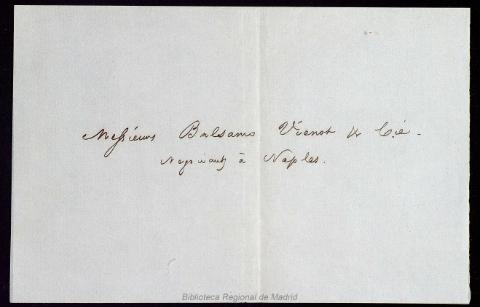 Messieurs Balsamo Vienot & Cie.
Negociants à Naples.
Biblioteca Regional de Madrid